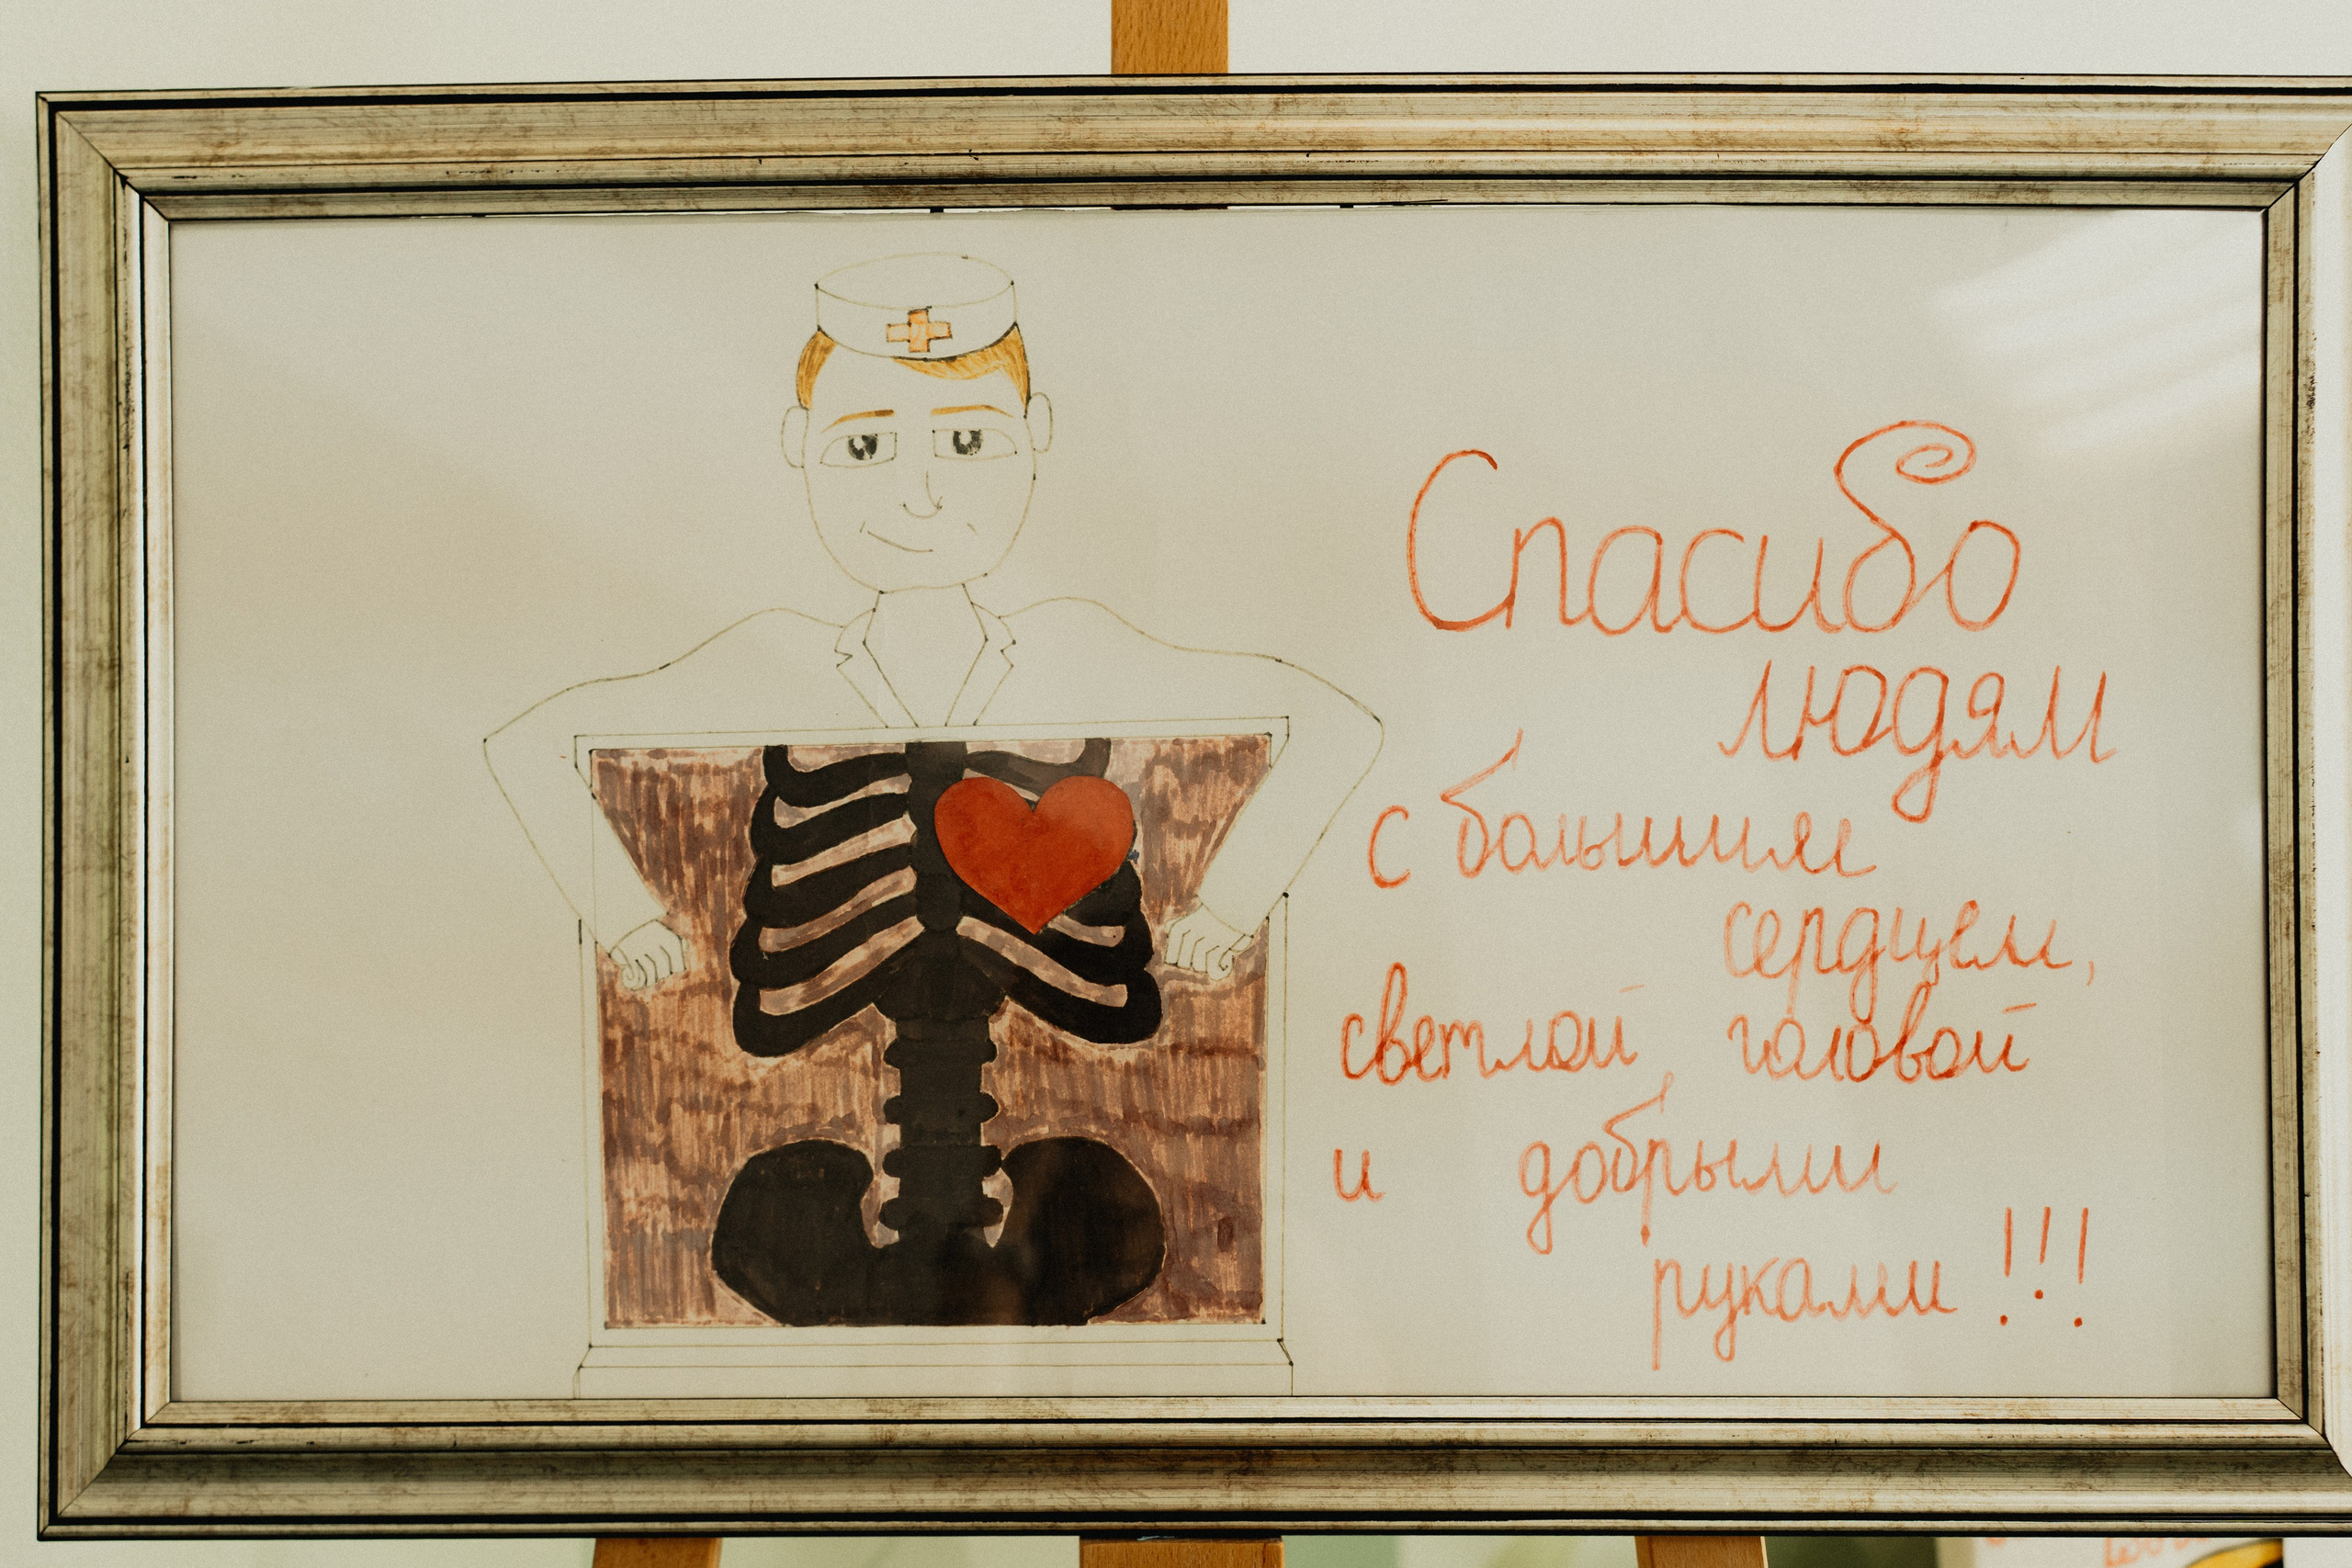 Спасибо
людям
с большим
сердцем,
светлой головой
и добрыми
руками!!!